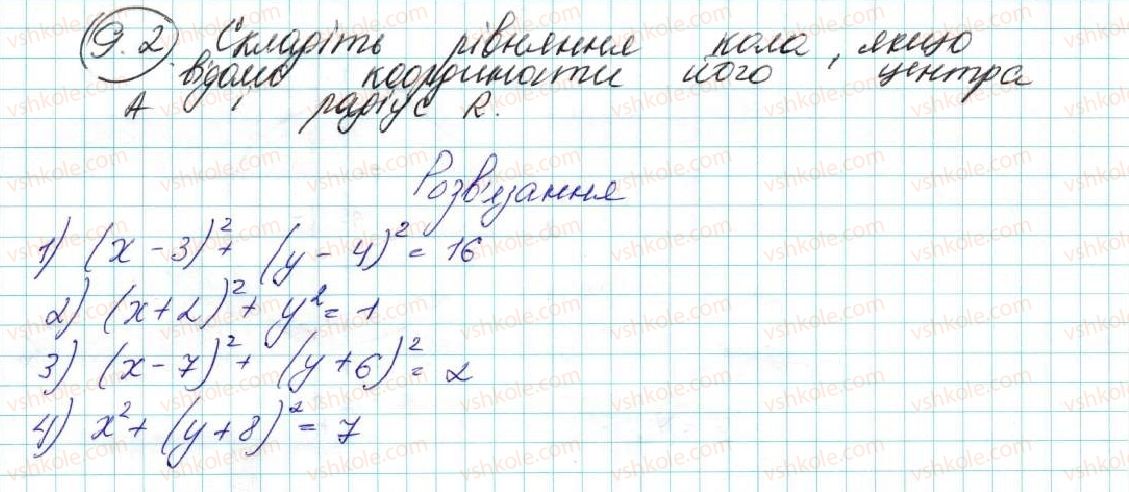 9.2. Складіть рівняння кола, якщо
відомо координати його центра
A і радіус R.
Розв'язання
1) (x - 3)² + (y - 4)² = 16
2) (x + 2)² + y² = 1
3) (x - 7)² + (y + 6)² = 2
4) x² + (y + 8)² = 7